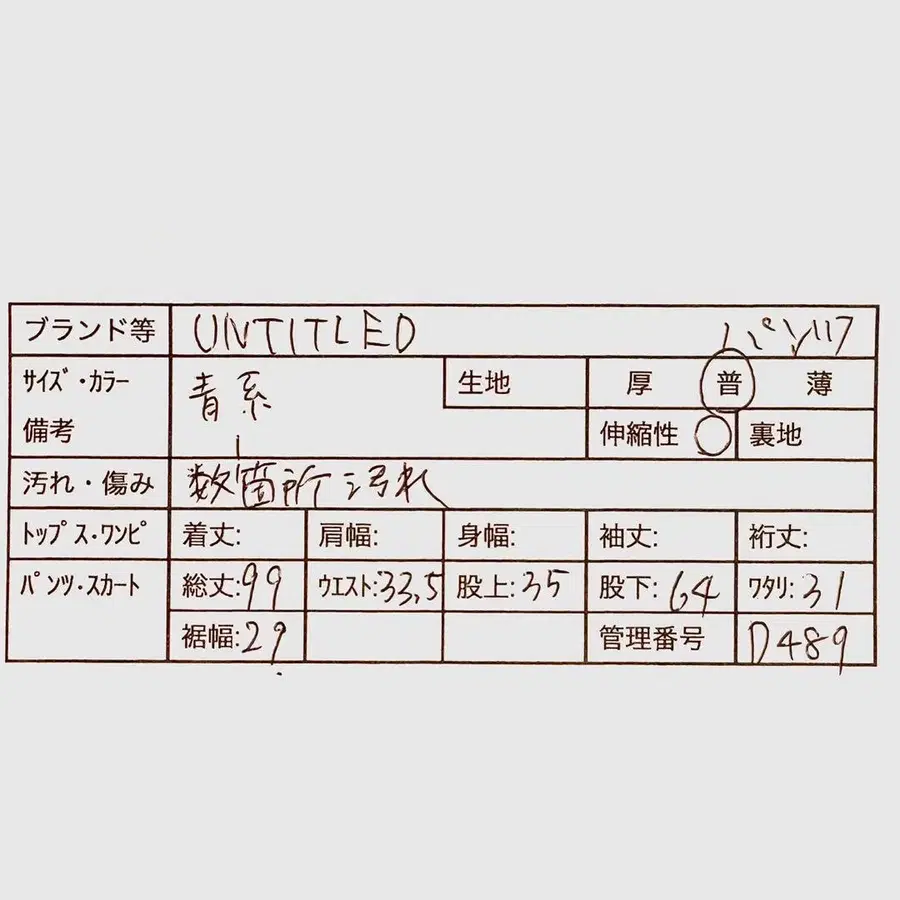 ブランド等 UNTITLED パンツ
サイズ・カラー 青系 生地 厚 普 薄
備考 伸縮性 ○ 裏地
汚れ・傷み 数箇所汚れ
トップス・ワンピ 着丈: 肩幅: 身幅: 袖丈: 裄丈:
パンツ・スカート 総丈:99 ウエスト:33,5 股上:35 股下:64 ワタリ:31
裾幅:29 管理番号 D489